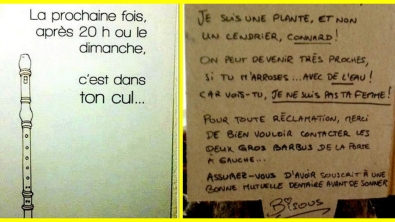 La prochaine fois,
après 20 h ou le
dimanche,
c'est dans
ton cul...
JE SUIS UNE PLANTE, ET NON
UN CENDRIER, CONNARD !
ON PEUT DEVENIR TRÈS PROCHES,
SI TU M'ARROSES... AVEC DE L'EAU !
CAR VOIS-TU, JE NE SUIS PAS TA FEMME !
POUR TOUTE RÉCLAMATION, MERCI
DE BIEN VOULOIR CONTACTER LES
DEUX GROS BARBUS DE LA PORTE
À GAUCHE...
ASSUREZ-VOUS D'AVOIR SOUSCRIT À UNE
BONNE MUTUELLE DENTAIRE AVANT DE SONNER
BISOUS